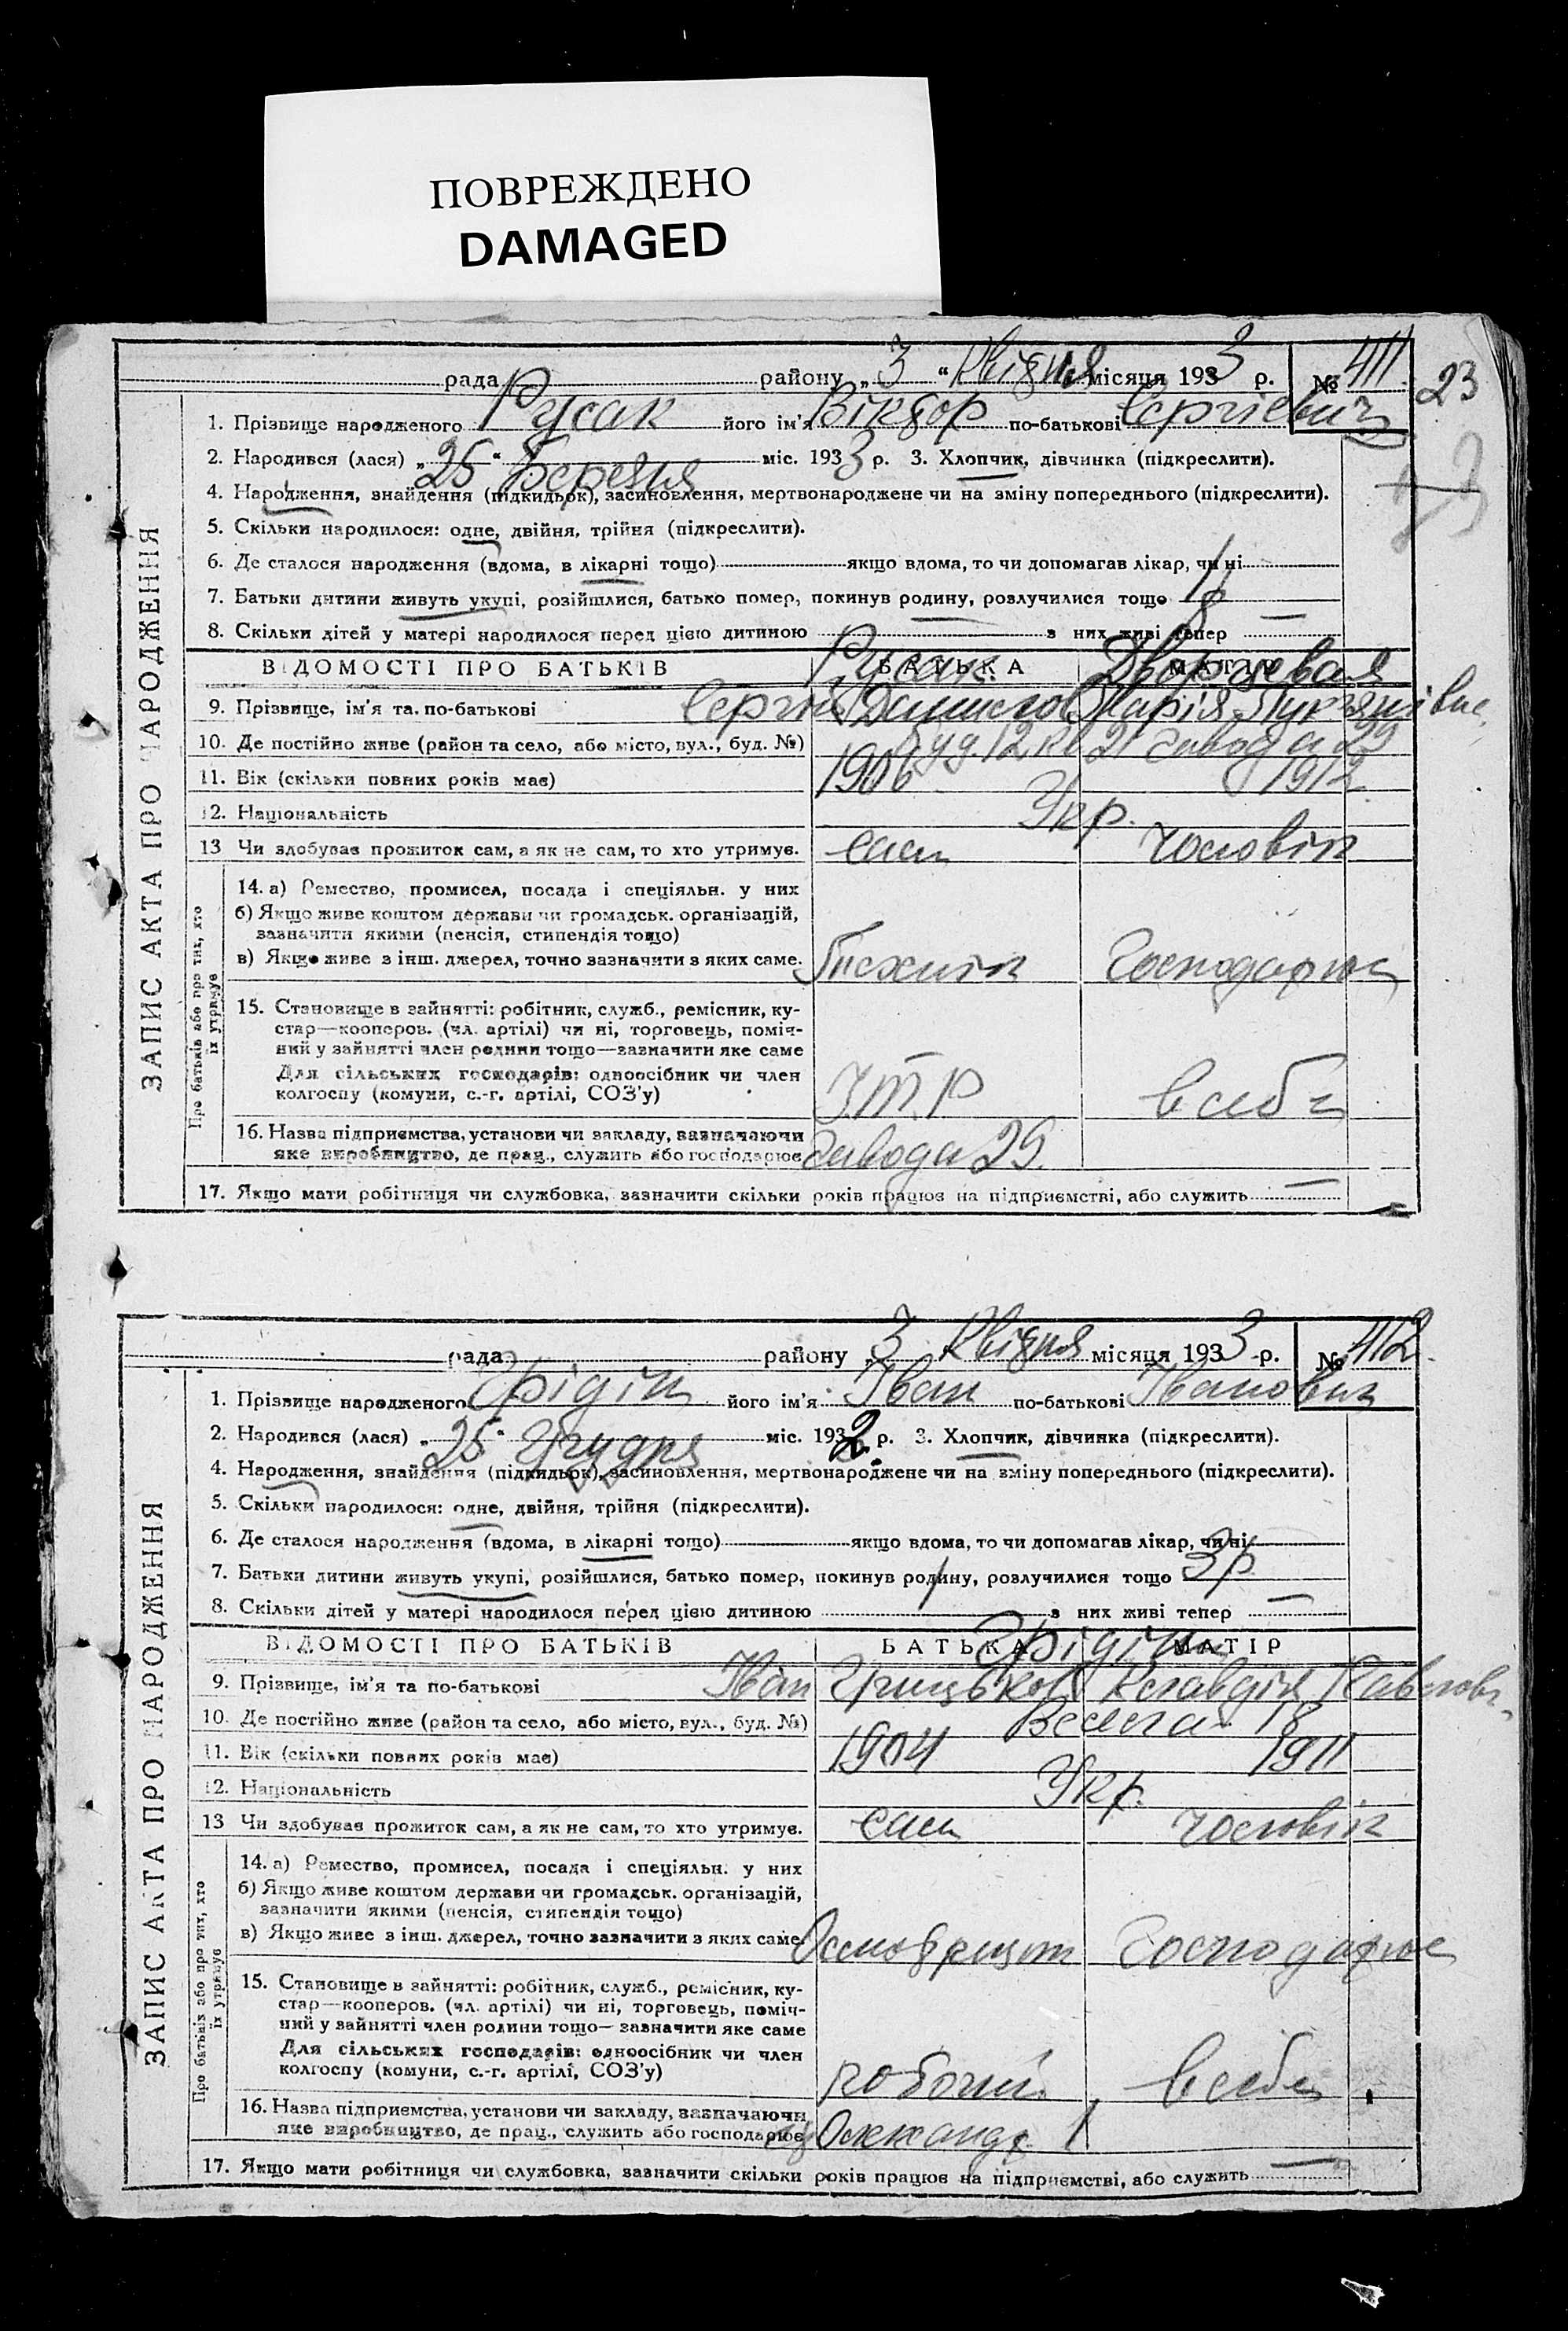 ПОВРЕЖДЕНО
DAMAGED
рада району „3“ Квітня місяця 1933 р. № 411.
23
1. Прізвище народженого Русак його ім'я Віктор по-батькові Сергіевич
2. Народився (лася) „25“ Березня міс. 1933 р. 3. Хлопчик, дівчинка (підкреслити).
4. Народження, знайдення (підкидьок), засиновлення, мертвонароджене чи на зміну попереднього (підкреслити).
5. Скільки народилося: одне, двійня, трійня (підкреслити).
6. Де сталося народження (вдома, в лікарні тощо) якщо вдома, то чи допомагав лікар, чи ні
7. Батьки дитини живуть укупі, розійшлися, батько помер, покинув родину, розлучилися тощо
8. Скільки дітей у матері народилося перед цією дитиною — з них живі тепер —
ЗАПИС АКТА ПРО НАРОДЖЕННЯ
ВІДОМОСТІ ПРО БАТЬКІВ БАТЬКА МАТІР
Русак
9. Прізвище, ім'я та по-батькові Сергій Марія
10. Де постійно живе (район та село, або місто, вул., буд. №) буд. 12 кв 21 завода 29
11. Вік (скільки повних років має) 1906 1912
12. Національність Укр.
13 Чи здобував прожиток сам, а як не сам, то хто утримує. сам чоловік
Про батьків або про тих, хто їх утримує
14. а) Ремество, промисел, посада і спеціяльн. у них
б) Якщо живе коштом держави чи громадськ. організацій,
зазначити якими (пенсія, стипендія тощо)
в) Якщо живе з інш. джерел, точно зазначити з яких саме. Технік Господарює
15. Становище в зайнятті: робітник, служб., ремісник, ку-
стар—кооперов. (чл. артілі) чи ні, торговець, поміч-
ний у зайнятті член родини тощо—зазначити яке саме
Для сільських господарів: одноосібник чи член
колгоспу (комуни, с.-г. артілі, СОЗ'у) І.Т.Р в себе
16. Назва підприємства, установи чи закладу, зазначаючи
яке виробництво, де прац., служить або господарює Завода 29.
17. Якщо мати робітниця чи службовка, зазначити скільки років працює на підприємстві, або служить —
рада району „3 Квітня місяця 1933 р. № 412.
1. Прізвище народженого його ім'я Іван по-батькові Іванович
2. Народився (лася) „25“ Грудня міс. 1932 р. 3. Хлопчик, дівчинка (підкреслити).
4. Народження, знайдення (підкидьок), засиновлення, мертвонароджене чи на зміну попереднього (підкреслити).
5. Скільки народилося: одне, двійня, трійня (підкреслити).
6. Де сталося народження (вдома, в лікарні тощо) якщо вдома, то чи допомагав лікар, чи ні
7. Батьки дитини живуть укупі, розійшлися, батько помер, покинув родину, розлучилися тощо 3р
8. Скільки дітей у матері народилося перед цією дитиною 1 з них живі тепер —
ЗАПИС АКТА ПРО НАРОДЖЕННЯ
ВІДОМОСТІ ПРО БАТЬКІВ БАТЬКА МАТІР
9. Прізвище, ім'я та по-батькові Іван Грицьков Клавдія Павловн.
10. Де постійно живе (район та село, або місто, вул., буд. №) 18
11. Вік (скільки повних років має) 1904 1911
12. Національність Укр.
13 Чи здобував прожиток сам, а як не сам, то хто утримує. сам чоловік
Про батьків або про тих, хто їх утримує
14. а) Ремество, промисел, посада і спеціяльн. у них
б) Якщо живе коштом держави чи громадськ. організацій,
зазначити якими (пенсія, стипендія тощо)
в) Якщо живе з інш. джерел, точно зазначити з яких саме. Господарює
15. Становище в зайнятті: робітник, служб., ремісник, ку-
стар—кооперов. (чл. артілі) чи ні, торговець, поміч-
ний у зайнятті член родини тощо—зазначити яке саме
Для сільських господарів: одноосібник чи член
колгоспу (комуни, с.-г. артілі, СОЗ'у) робочий в себе
16. Назва підприємства, установи чи закладу, зазначаючи
яке виробництво, де прац., служить або господарює
17. Якщо мати робітниця чи службовка, зазначити скільки років працює на підприємстві, або служить —